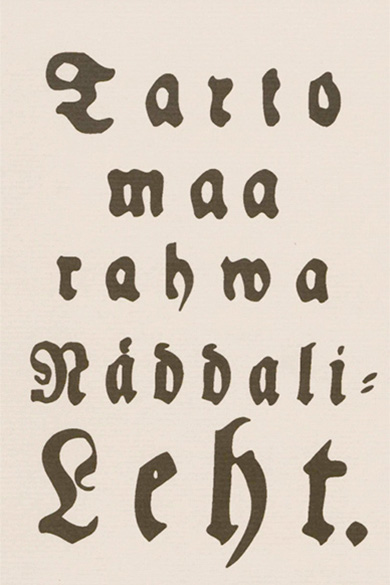 Tarto
maa
rahwa
Näddali-
Leht.